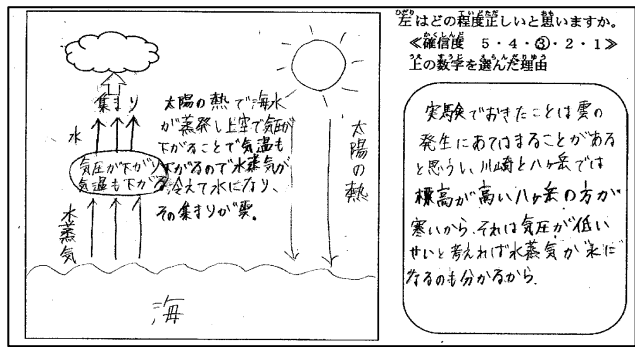 集まり
水
気圧が下がり
気温も下がる
水蒸気
海
太陽の熱で海水
が蒸発し上空で気圧が
下がることで気温も
下がるので水蒸気が
冷えて水になり、
その集まりが雲。
太陽の熱
左はどの程度正しいと思いますか。
≪確信度 5・4・③・2・1≫
上の数字を選んだ理由
実験でおきたことは雲の
発生にあてはまることがある
と思うし、川崎と八ヶ岳では
標高が高い八ヶ岳の方が
寒いから、それは気圧が低い
せいと考えれば水蒸気が氷に
なるのも分かるから。